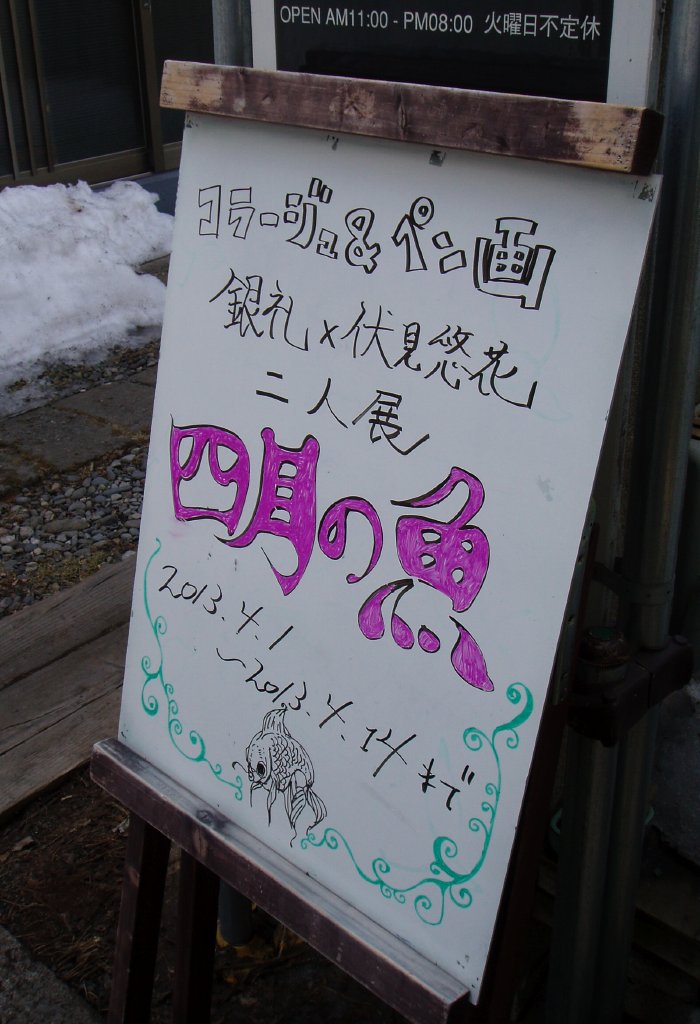 OPEN AM11:00 - PM08:00 火曜日不定休
コラージュ&ペン画
銀礼×伏見悠花
二人展
四月の魚
2013.4.1
～2013.4.14まで